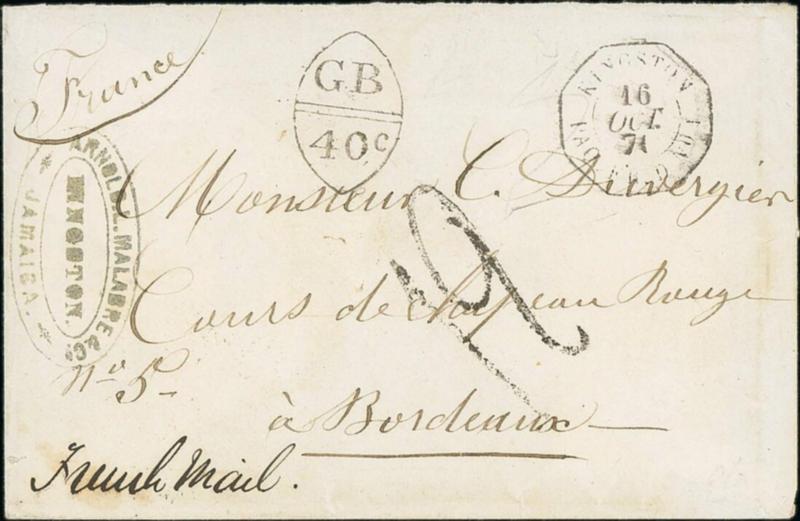 France
GB
40c
KINGSTON
16
OCT.
71
ARNOLD L. MALABRE & Co.
KINGSTON.
JAMAICA.
Monsieur C. Duvergier
Cours de Chapeau Rouge
No. 5
à Bordeaux
French Mail.